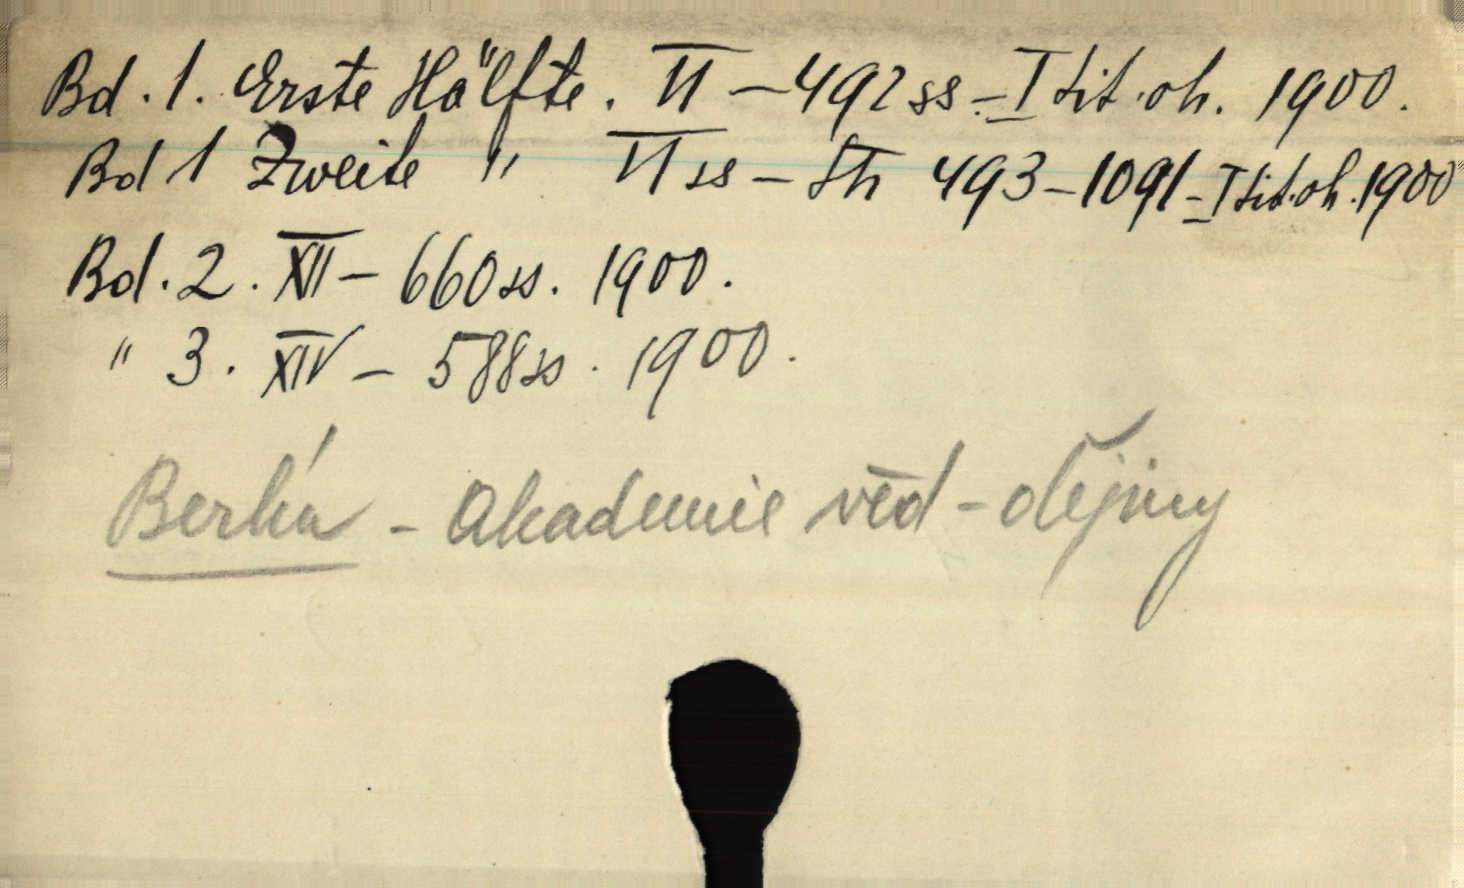 Bd. 1. Erste Hälfte. II – 492 ss – I tit. ob. 1900.
Bd 1 Zweite " II ss – Str 493 – 1091 – I tit. ob. 1900
Bd. 2. XII – 660 ss. 1900.
" 3. XIV – 588 ss. 1900.
Berlín – Akademie věd – dějiny